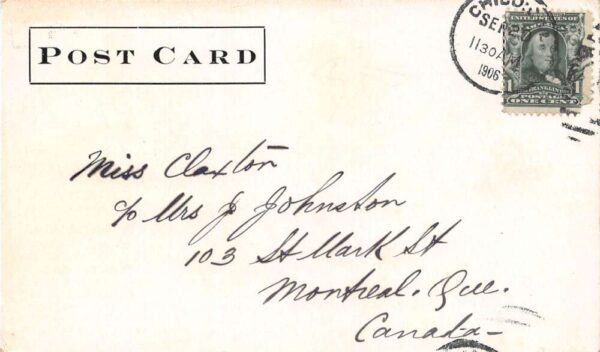 POST CARD
CHICO
SEP
1130AM
1906
UNITED STATES OF
1 FRANKLIN 1
POSTAGE
ONE CENT
Miss Claxton
c/o Mrs J Johnston
103 St Mark St
Montreal. Que.
Canada—